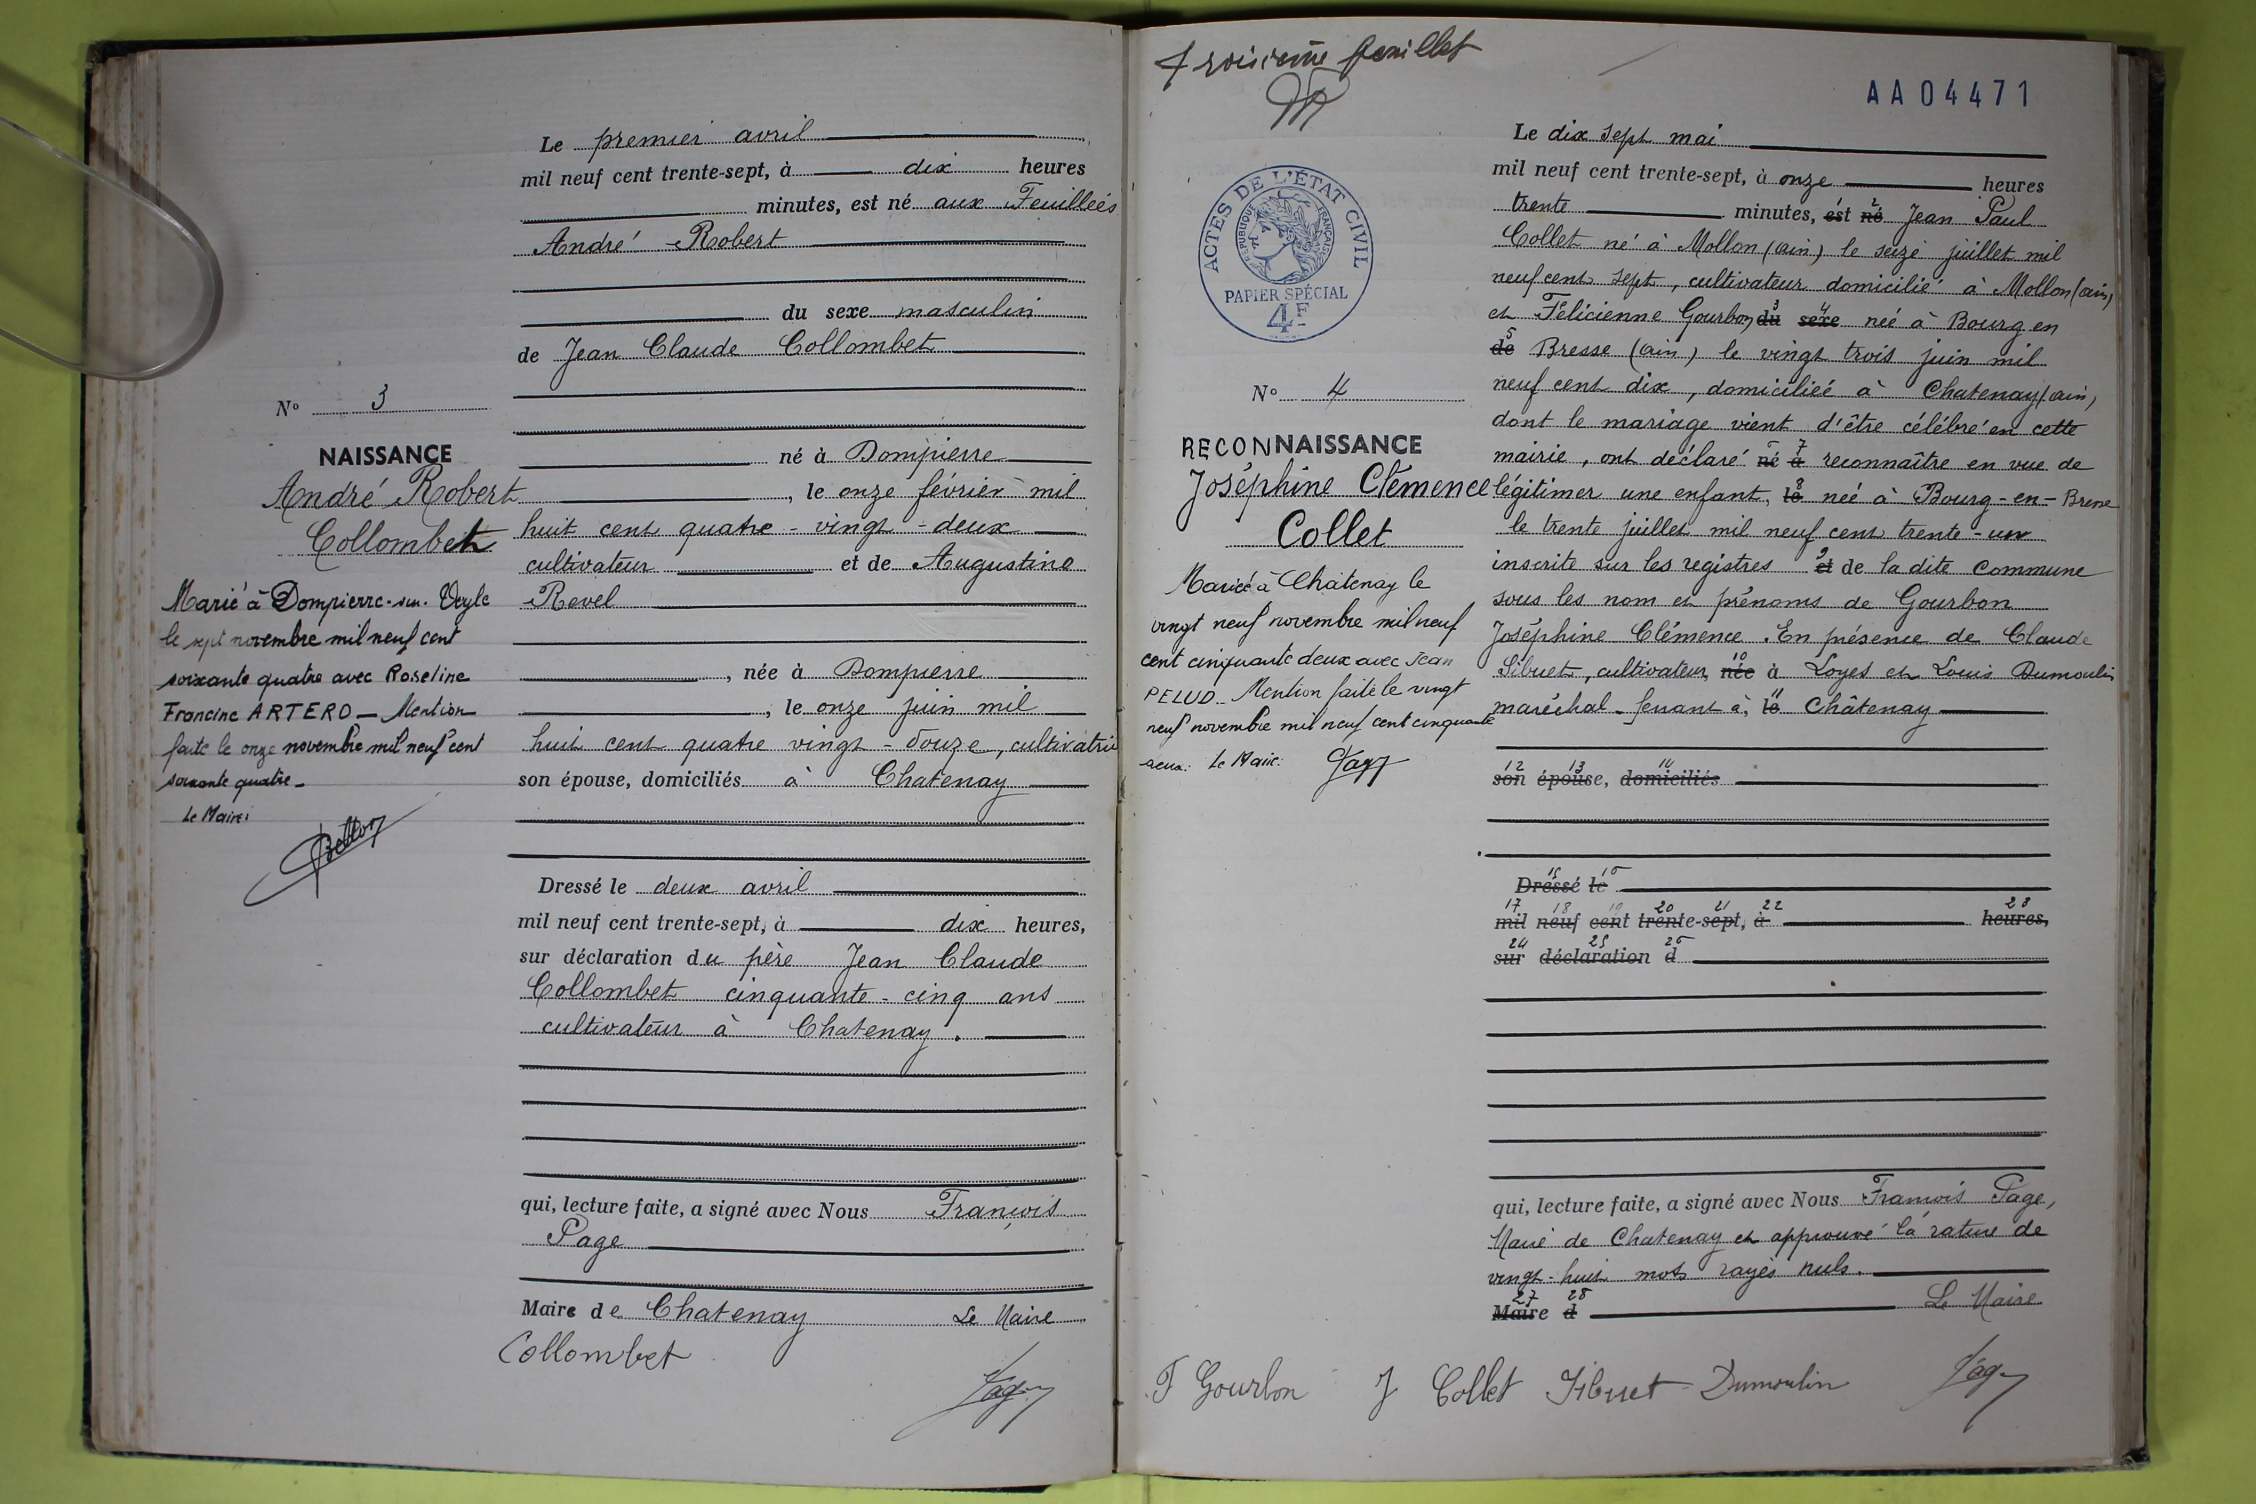 Le premier avril
mil neuf cent trente-sept, à dix heures
minutes, est né aux Feuillées
André Robert
du sexe masculin
de Jean Claude Collombet
né à Dompierre
, le onze février mil
huit cent quatre-vingt-deux
cultivateur et de Augustine
Revel
, née à Dompierre
, le onze juin mil
huit cent quatre vingt-douze, cultivatrice
son épouse, domiciliés à Chatenay
Dressé le deux avril
mil neuf cent trente-sept, à dix heures,
sur déclaration du père Jean Claude
Collombet cinquante-cinq ans
cultivateur à Chatenay.
qui, lecture faite, a signé avec Nous François
Page
Maire de Chatenay Le Maire
Collombet
Page
No 3
NAISSANCE
André Robert
Collombet
Marié à Dompierre-sur-Veyle
le sept novembre mil neuf cent
soixante quatre avec Roseline
Francine ARTERO - Mention
faite le onze novembre mil neuf cent
soixante quatre -
Le Maire:
troisième feuillet
AA04471
ACTES DE L'ÉTAT CIVIL
RÉPUBLIQUE FRANÇAISE
PAPIER SPÉCIAL
4F
No 4
RECONNAISSANCE
Joséphine Clémence
Collet
Mariée à Chatenay le
vingt neuf novembre mil neuf
cent cinquante deux avec Jean
PELUD. Mention faite le vingt
neuf novembre mil neuf cent cinquante
deux. Le Maire:
Page
Le dix sept mai
mil neuf cent trente-sept, à onze heures
trente minutes, est né Jean Paul
Collet né à Mollon (ain) le seize juillet mil
neuf cent sept, cultivateur domicilié à Mollon (ain)
et Félicienne Gourbon du sexe née à Bourg en
de Bresse (ain) le vingt trois juin mil
neuf cent dix, domiciliée à Chatenay (ain)
dont le mariage vient d'être célébré en cette
mairie, ont déclaré né à reconnaître en vue de
légitimer une enfant, le née à Bourg-en-Bresse
le trente juillet mil neuf cent trente-un
inscrite sur les registres et de la dite commune
sous les nom et prénoms de Gourbon
Joséphine Clémence. En présence de Claude
Sibuet, cultivateur, née à Loyes et Louis Dumoulin
maréchal-ferrant à, le Châtenay
son épouse, domiciliés
Dressé le
mil neuf cent trente-sept, à heures,
sur déclaration d
qui, lecture faite, a signé avec Nous François Page,
Maire de Chatenay et approuvé la rature de
vingt-huit mots rayés nuls.
Maire d Le Maire
F Gourbon J Collet Sibuet Dumoulin Page